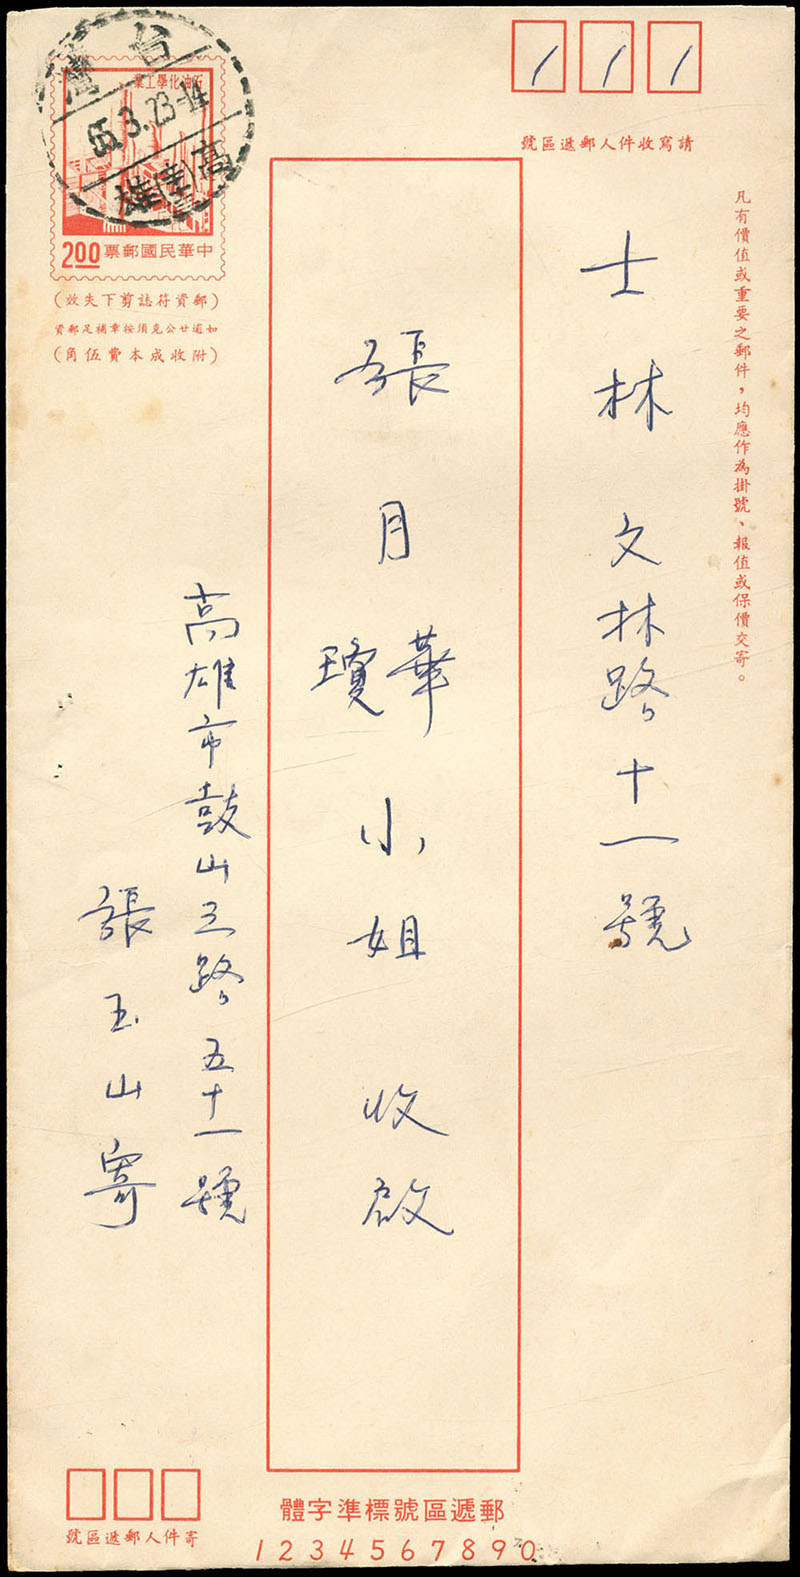 1 1 1
請寫收件人郵遞區號
凡有價值或重要之郵件，均應作為掛號、報值或保價交寄。
士林文林路十一號
張月華瓊小姐收啟
高雄市鼓山三路五十一號
張玉山寄
台灣
65.3.23-14
高雄
石油化學工業
中華民國郵票
2.00
(郵資符誌剪下失效)
如逾廿公克須按章補足郵資
(附收成本費伍角)
寄件人郵遞區號
郵遞區號標準字體
1 2 3 4 5 6 7 8 9 0